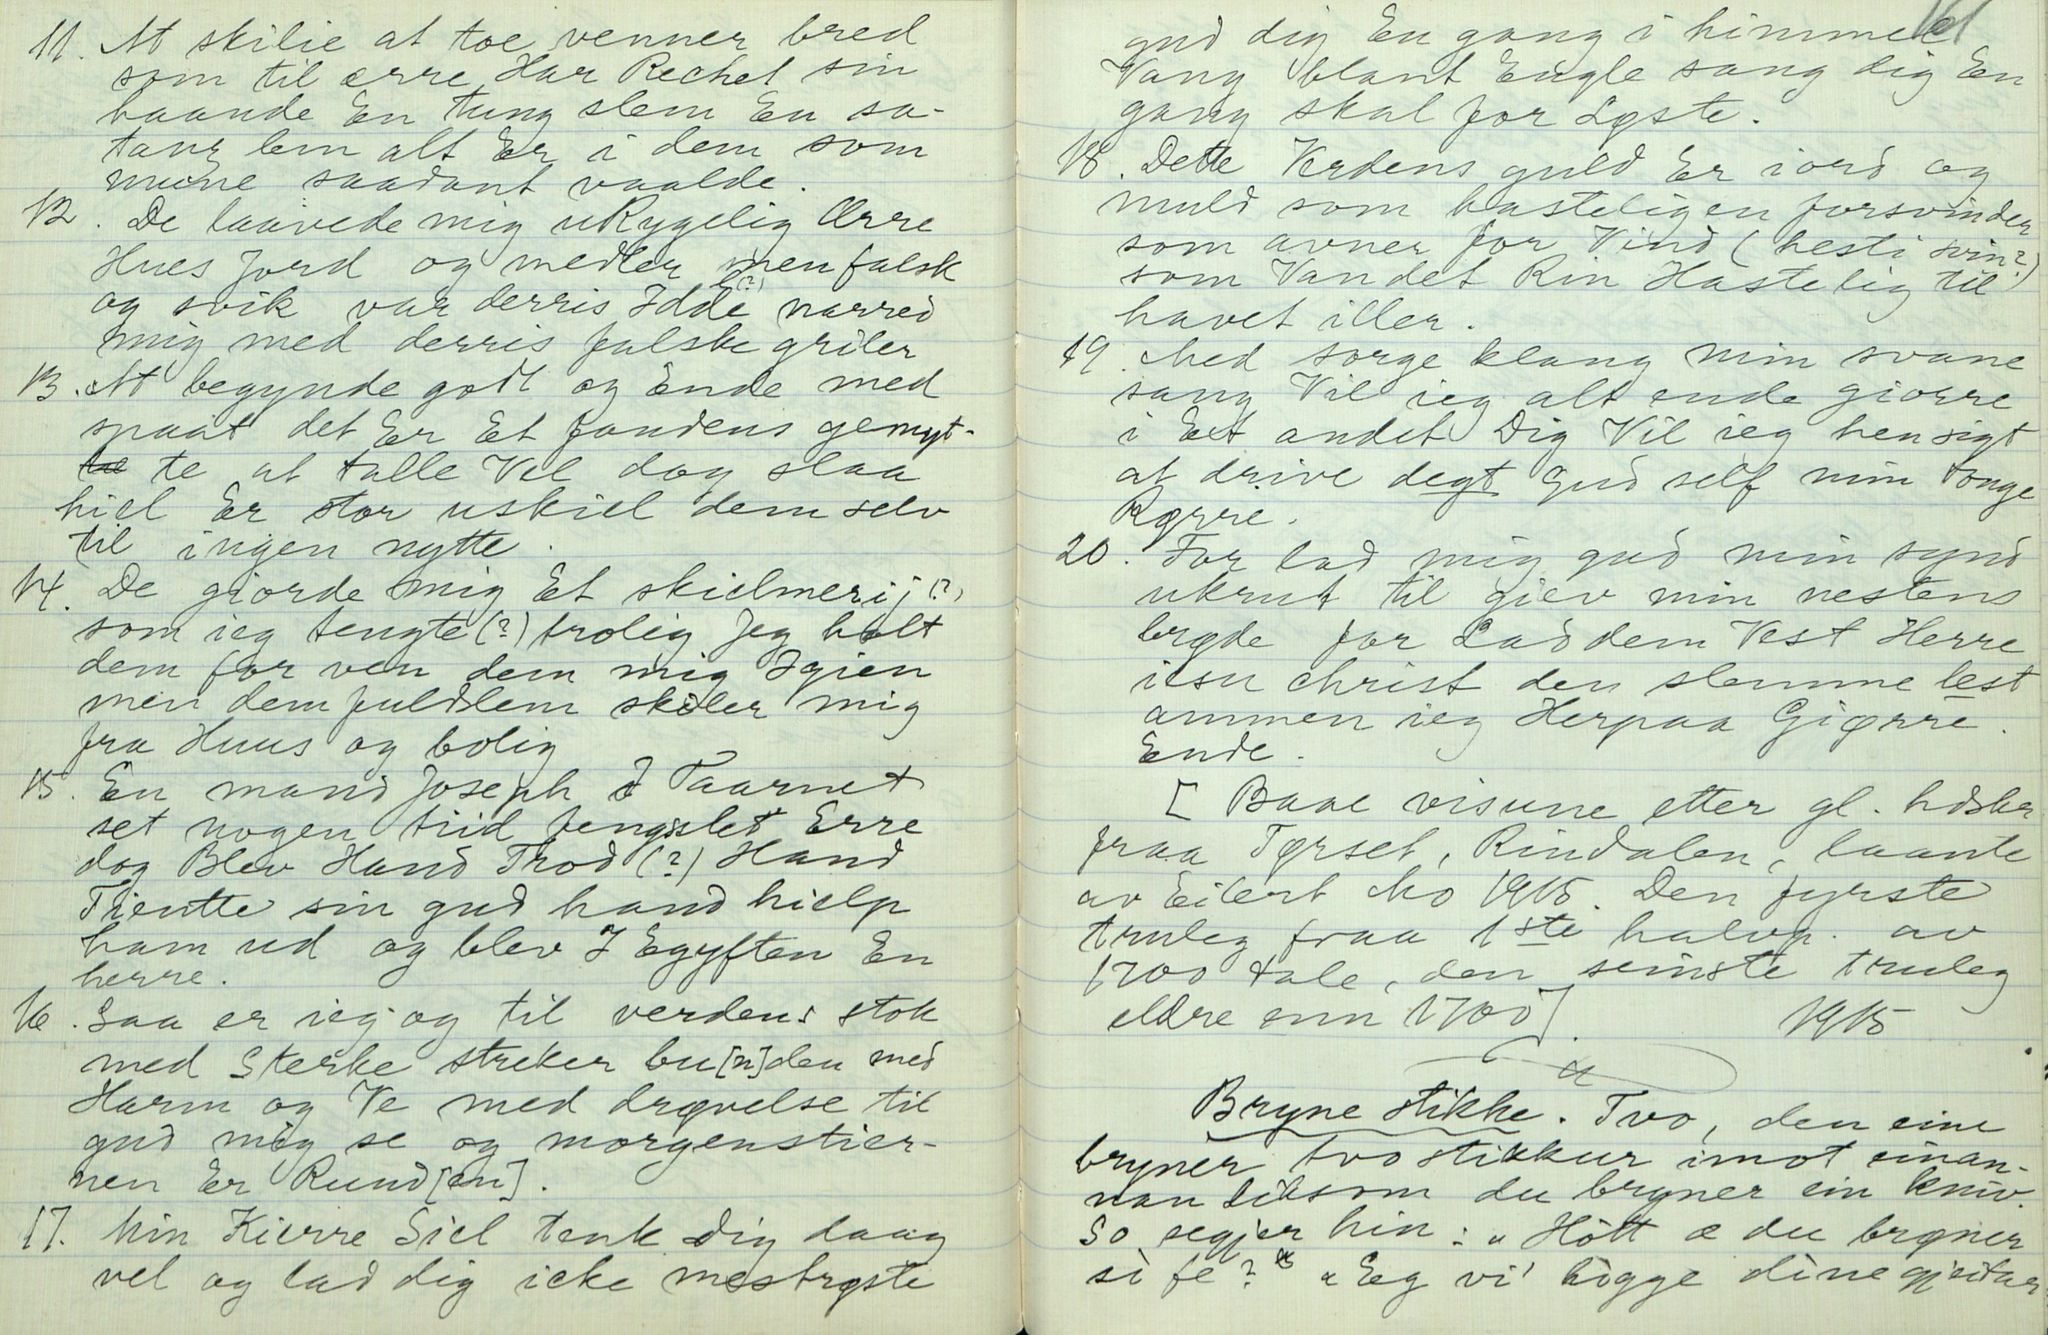 11. At skilie at toe venner bred
som til ærre Har Rechel sin
haande En tung slem En sa-
tans lem alt Er i dem som
mune saadant vaalde.
12. De laavede mig uRygelig Ærre
Hues Jord og medler men falsk
og svik var derris Idde (?) narred
mig med derris falske griler
13. At begynde godt og Ende med
spaat det Er Et fandens gemyt-
te at talle Vel dog slaa
hiel Er stor uskiel dem selv
til ingen nytte.
14. De giorde mig Et skielmerij (?)
som ieg tengte (?) trolig Jeg holt
dem for ven dem mig Igien
men dem fuldslem skiler mig
fra Huus og bolig
15. En mand Joseph I Taarnet
set nogen tiid fengslet Erre
dog Blev Hand Trod (?) Hand
Tientte sin gud hand hielp
ham ud og blev I Egyften En
herre.
16. Saa er ieg og til verdens stok
med Sterke streker bu[n]den med
Harm og Ve med drøvelse til
gud mig se og morgenstier-
nen Er Rund[en].
17. Min Kierre Siel tenk dig daag
vel og lad dig icke mestrøste
161
gud dig En gang i himmel
Vang blant Engle sang dig En
gang skal for Løste.
18. Dette Verdens guld Er iord og
muld som hasteligen forsvinder
som avner for Vind (hesti svin?)
som Vandet Rin Hastelig til
havet iller.
19. Med sorge klang min svane
sang Vil ieg alt ende giørre
i Et andet Dig Vil ieg hensigt
at drive degt Gud self min tonge
Rørre.
20. For lad mig gud min synd
ukrut til giev min nestens
brøde for Lad dem Vest Herre
iesu christ den slemme lest
ammen ieg Herpaa Giørre
Ende.
[Baae visune etter gl. hdskr
fraa Tørset, Rindalen, laante
av Eilert Mo 1915. Den fyrste
truleg fraa 1ste halvp. av
1700 tale, den seinste truleg
eldre enn 1700].
1915
Bryne stikke. Tvo, den eine
bryner tvo stikkur imot einan-
nan liksom du bryner ein kniv.
So segjer hin: "Hòtt æ du brøner
sì fe?" "Eg vi' hògge dine gjeitar